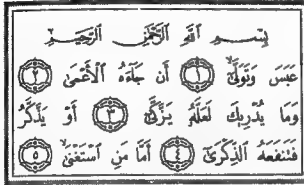 بِسْمِ ٱللَّهِ ٱلرَّحْمَٰنِ ٱلرَّحِيمِ
عَبَسَ وَتَوَلَّىٰٓ ١ أَن جَآءَهُ ٱلْأَعْمَىٰ ٢
وَمَا يُدْرِيكَ لَعَلَّهُۥ يَزَّكَّىٰٓ ٣ أَوْ يَذَّكَّرُ
فَتَنفَعَهُ ٱلذِّكْرَىٰٓ ٤ أَمَّا مَنِ ٱسْتَغْنَىٰ ٥